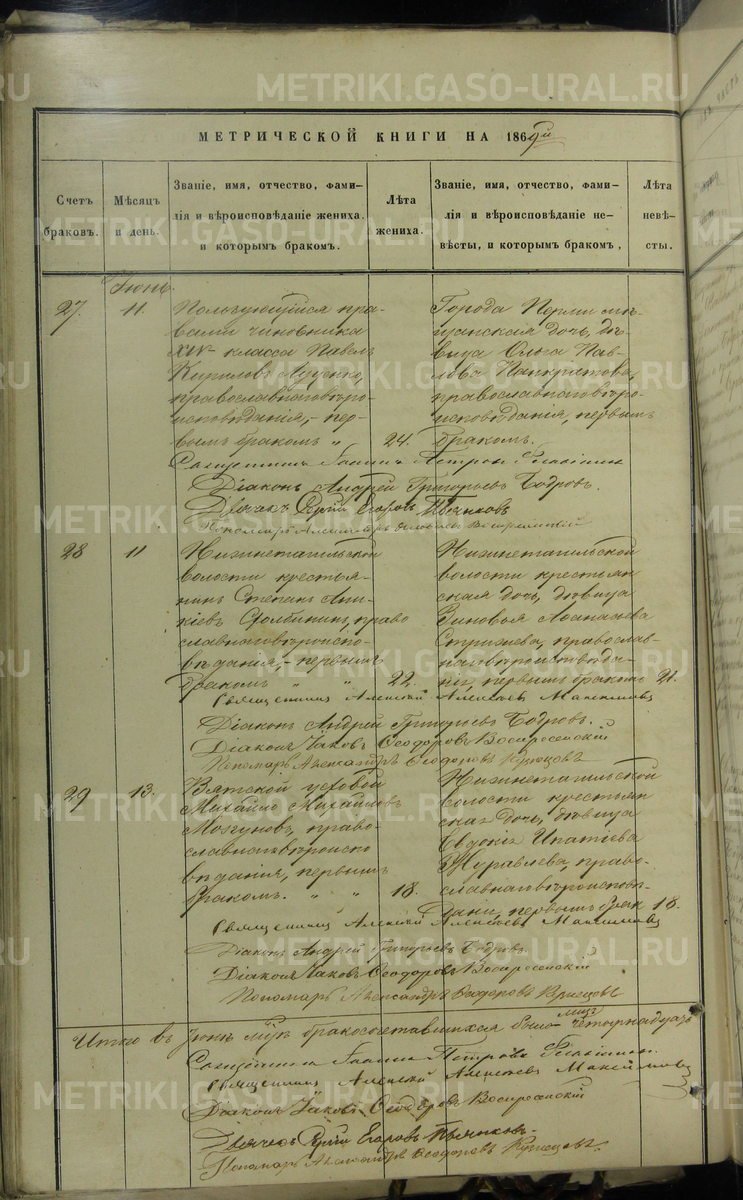 МЕТРИЧЕСКОЙ КНИГИ НА 1869й
Счетъ браковъ.
Мѣсяцъ и день.
Званіе, имя, отчество, фами-
лія и вѣроисповѣданіе жениха.
и которымъ бракомъ.
Лѣта жениха.
Званіе, имя, отчество, фами-
лія и вѣроисповѣданіе не-
вѣсты, и которымъ бракомъ,
Лѣта невѣ-
сты.
Іюнь.
27. 11.
Пользующійся пра-
вами чиновника
XIV класса Павелъ
Кириловъ Луценко,
православнаго вѣро-
исповѣданія,- пер-
вымъ бракомъ " 24.
Города Перми мѣ-
щанская дочь, дѣ-
вица Ольга Пав-
лова Панкратова,
православнаго вѣро-
исповѣданія, первымъ
бракомъ.
Священникъ Іоаннъ Петровъ
Діаконъ Андрей Григорьевъ Бодровъ.
Дьячекъ Егоровъ Пьянковъ
Пономарь
28 11
Нижнетагильской
волости крестья-
нинъ Степанъ Ани-
кіевъ Столбининъ, право
славнаго вѣроиспо-
вѣданія,- первымъ
бракомъ " " 22.
Нижнетагильской
волости крестьян
ская дочь, дѣвица
Зиновья Афанасьева
Стрижева, православ-
наго вѣроисповѣда-
нія, первымъ бракомъ 21.
Священникъ Алексѣй Алексѣевъ Максимовъ
Діаконъ Андрей Григорьевъ Бодровъ.
Діаконъ Іаковъ Ѳеодоровъ Воскресенскій
Пономарь Александръ Ѳеодоровъ Кузнецовъ
29 13.
Вятской
Михайло Михайловъ
Могуновъ, право-
славнаго вѣроиспо
вѣданія, первымъ
бракомъ. " " 18.
Нижнетагильской
волости крестьян
ская дочь, дѣвица
Евдокія Ипатіева
Журавлева, право-
славнаго вѣроисповѣ-
данія, первымъ брак 18.
Священникъ Алексѣй Алексѣевъ Максимовъ
Діаконъ Андрей Григорьевъ Бодровъ
Діаконъ Іаковъ Ѳеодоровъ Воскресенскій
Пономарь Александръ Ѳеодоровъ Кузнецовъ
Итого въ Іюнѣ мцѣ бракосочетавшихся было четырнадцать
Священникъ Іоаннъ Петровъ
Священникъ Алексѣй Алексѣевъ Максимовъ
Діаконъ Іаковъ Ѳеодоровъ Воскресенскій
Дьячекъ Егоровъ Пьянковъ.
Пономарь Александръ Ѳеодоровъ Кузнецовъ.
METRIKI.GASO-URAL.RU